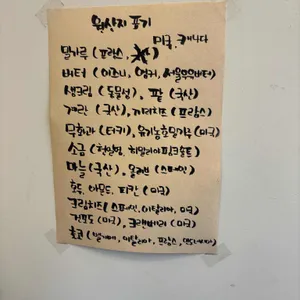 원산지 표기
미국, 캐나다
밀가루 (프랑스,
버터 (이즈니, 앵커, 서울우유버터)
생크림 (동물성), 팥 (국산)
계란 (국산), 크림치즈 (프랑스)
무화과 (터키), 유기농호밀가루 (미국)
소금 (천일염, 히말라야핑크솔트)
마늘 (국산), 올리브 (스페인)
호두, 아몬드, 피칸 (미국)
크림치즈 (스페인, 이탈리아, 미국)
건포도 (미국), 크랜베리 (미국)
초코 (벨기에, 이탈리아, 프랑스,